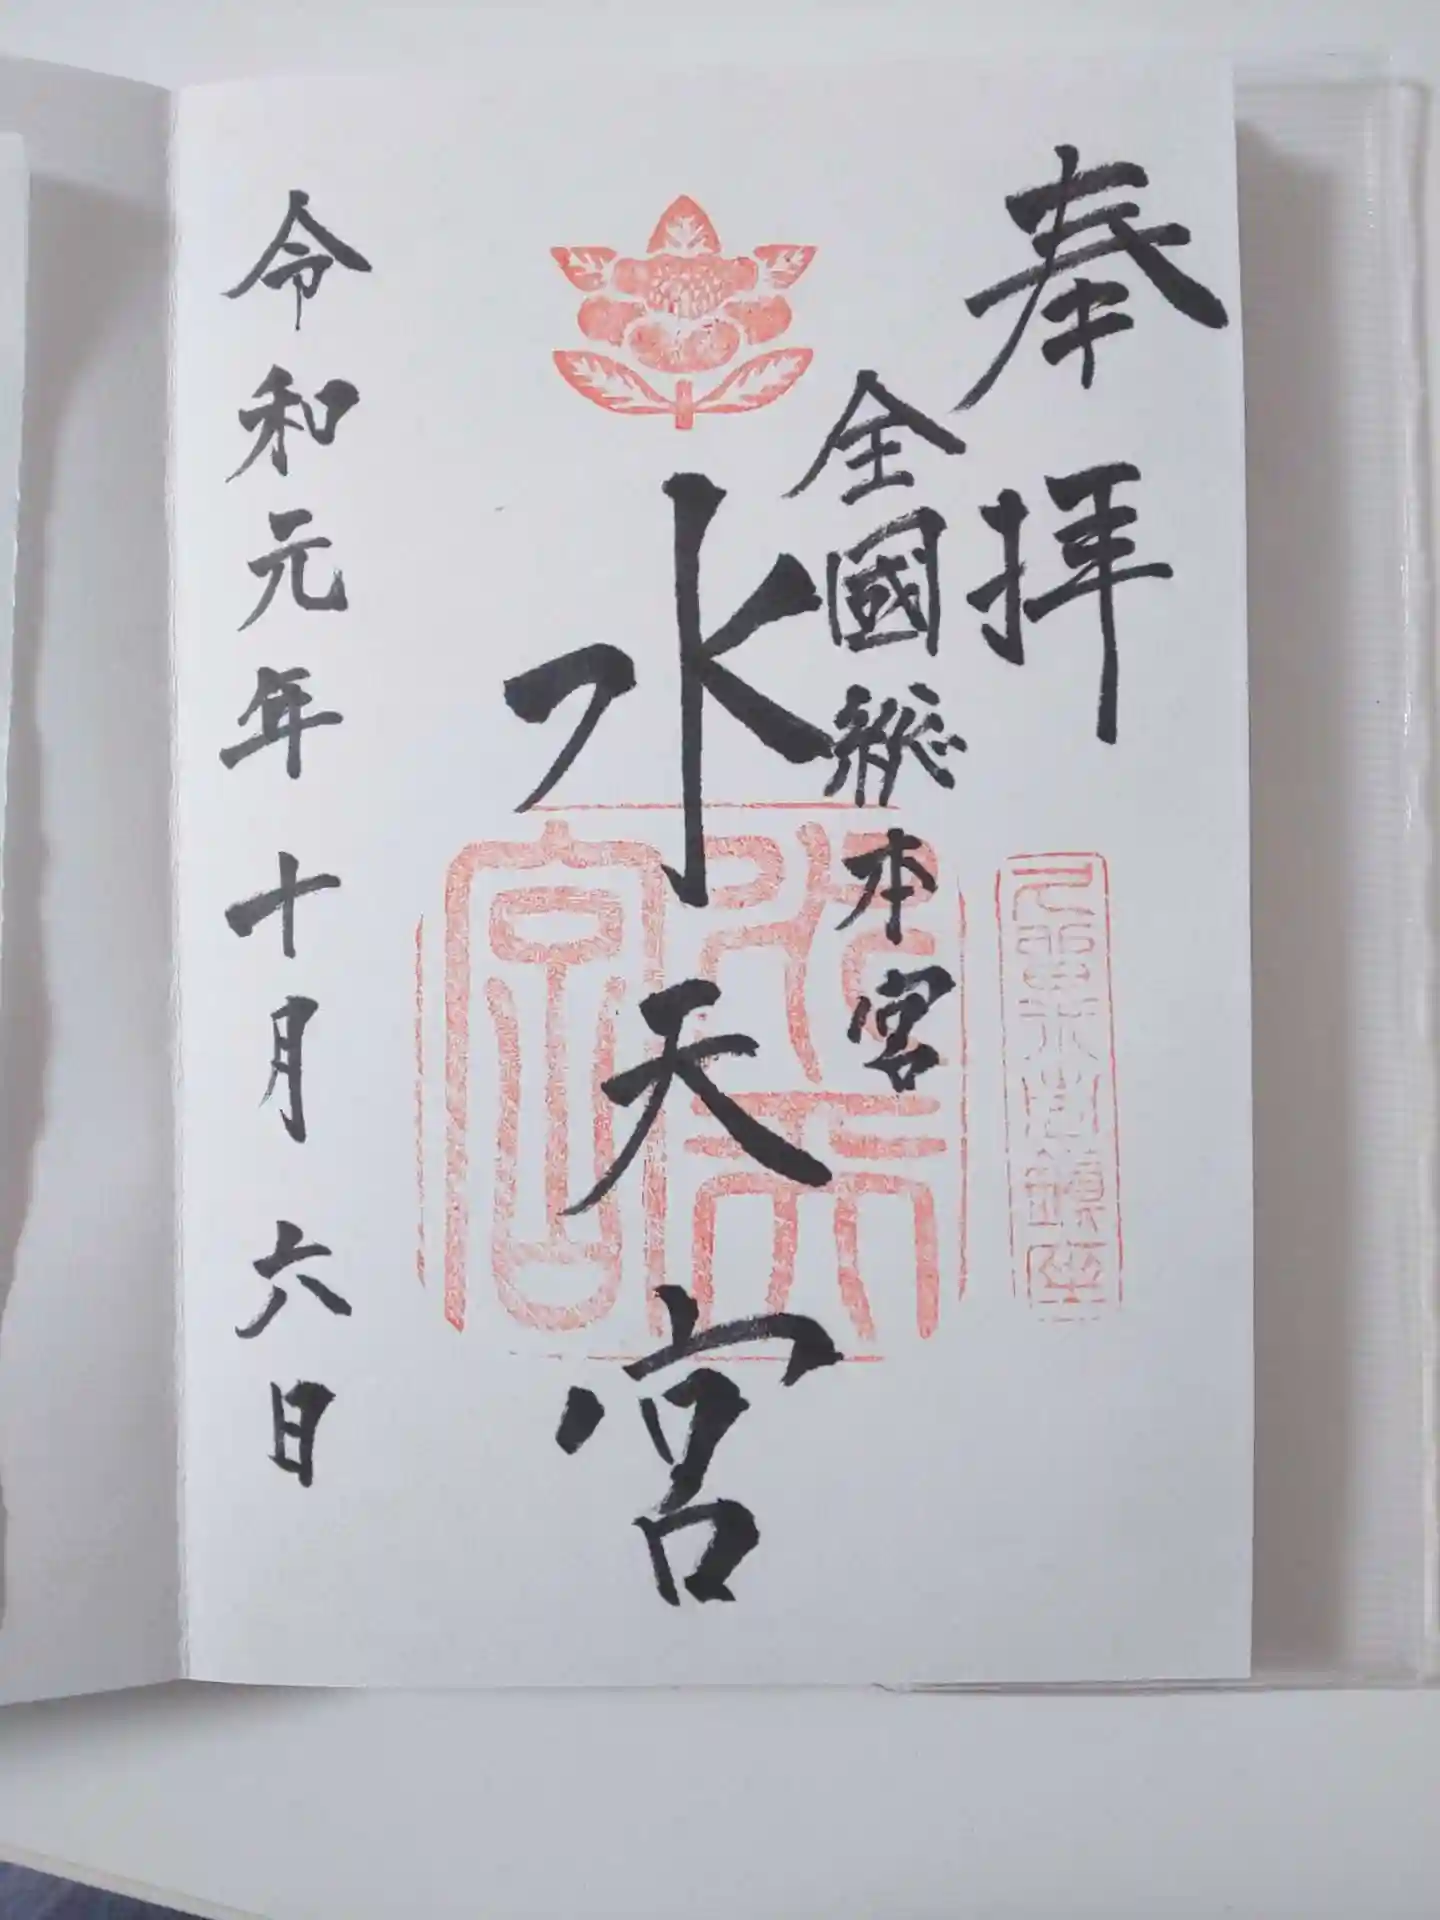 奉拝
全國総本宮
水天宮
水天宮
令和元年十月六日